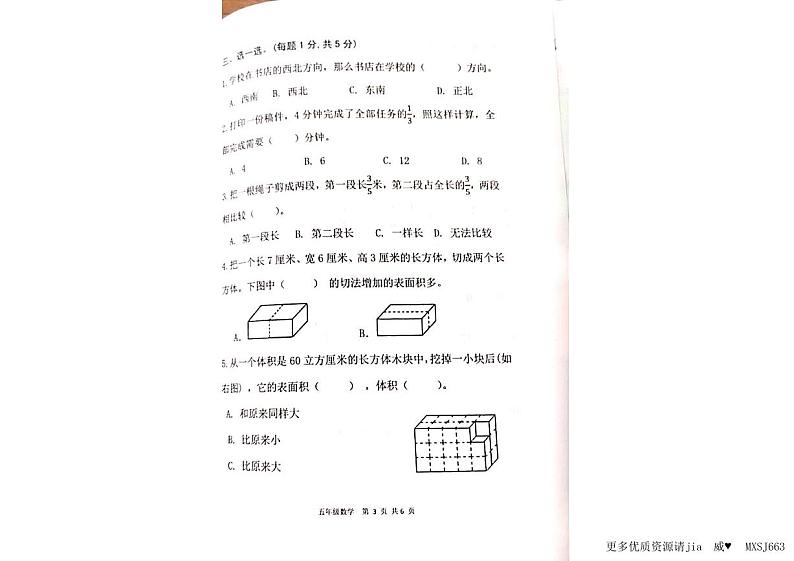 三、选一选。(每题1分,共5分)
1.学校在书店的西北方向，那么书店在学校的（ ）方向。
A. 西南 B. 西北 C. 东南 D. 正北
2.打印一份稿件，4分钟完成了全部任务的1/3，照这样计算，全
部完成需要（ ）分钟。
A. 4 B. 6 C. 12 D. 8
3.把一根绳子剪成两段，第一段长3/5米，第二段占全长的3/5，两段
相比较（ ）。
A. 第一段长 B. 第二段长 C. 一样长 D. 无法比较
4.把一个长7厘米、宽6厘米、高3厘米的长方体，切成两个长
方体。下图中（ ） 的切法增加的表面积多。
A. B.
5.从一个体积是60立方厘米的长方体木块中，挖掉一小块后(如
右图)，它的表面积（ ），体积（ ）。
A. 和原来同样大
B. 比原来小
C. 比原来大
五年级数学 第3页 共6页
更多优质资源请jia 威♥ MXSJ663